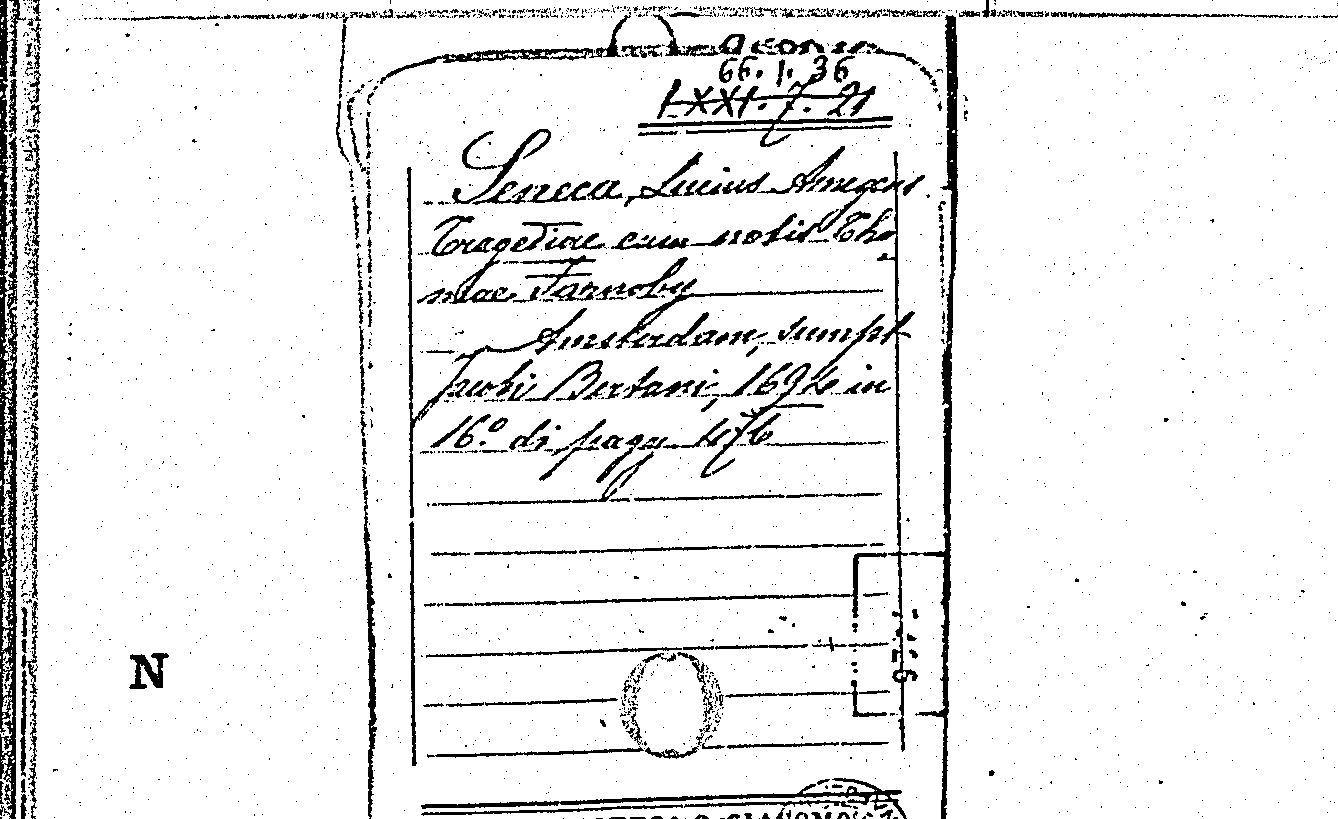 66. 1. 36
LXXI. 7. 21
Seneca, Lucius
Tragediae cum notis Tho
mae Farnoby
Amsterdam, sumpt
Jacobi Bertani, 1694 in
16.º di pagg. 476
N